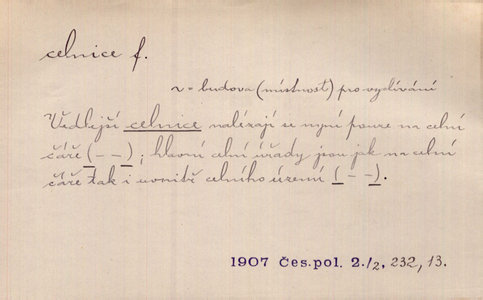 celnice f.
= budova (místnost) pro vydívání
Vedlejší celnice nalézají se nyní pouze na celní
čáře (--); hlavní celní úřady jsou jak na celní
čáře tak i uvnitř celního území (--).
1907 čes.pol. 2./2, 232, 13.